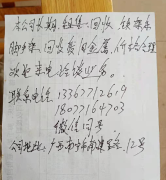 本公司长期租售回收铁架床
脚手架回收废旧金属价格合理
欢迎来电洽谈业务。
联系电话 13367712619
18077164703
微信同号
公司地址：广西南宁市 12号